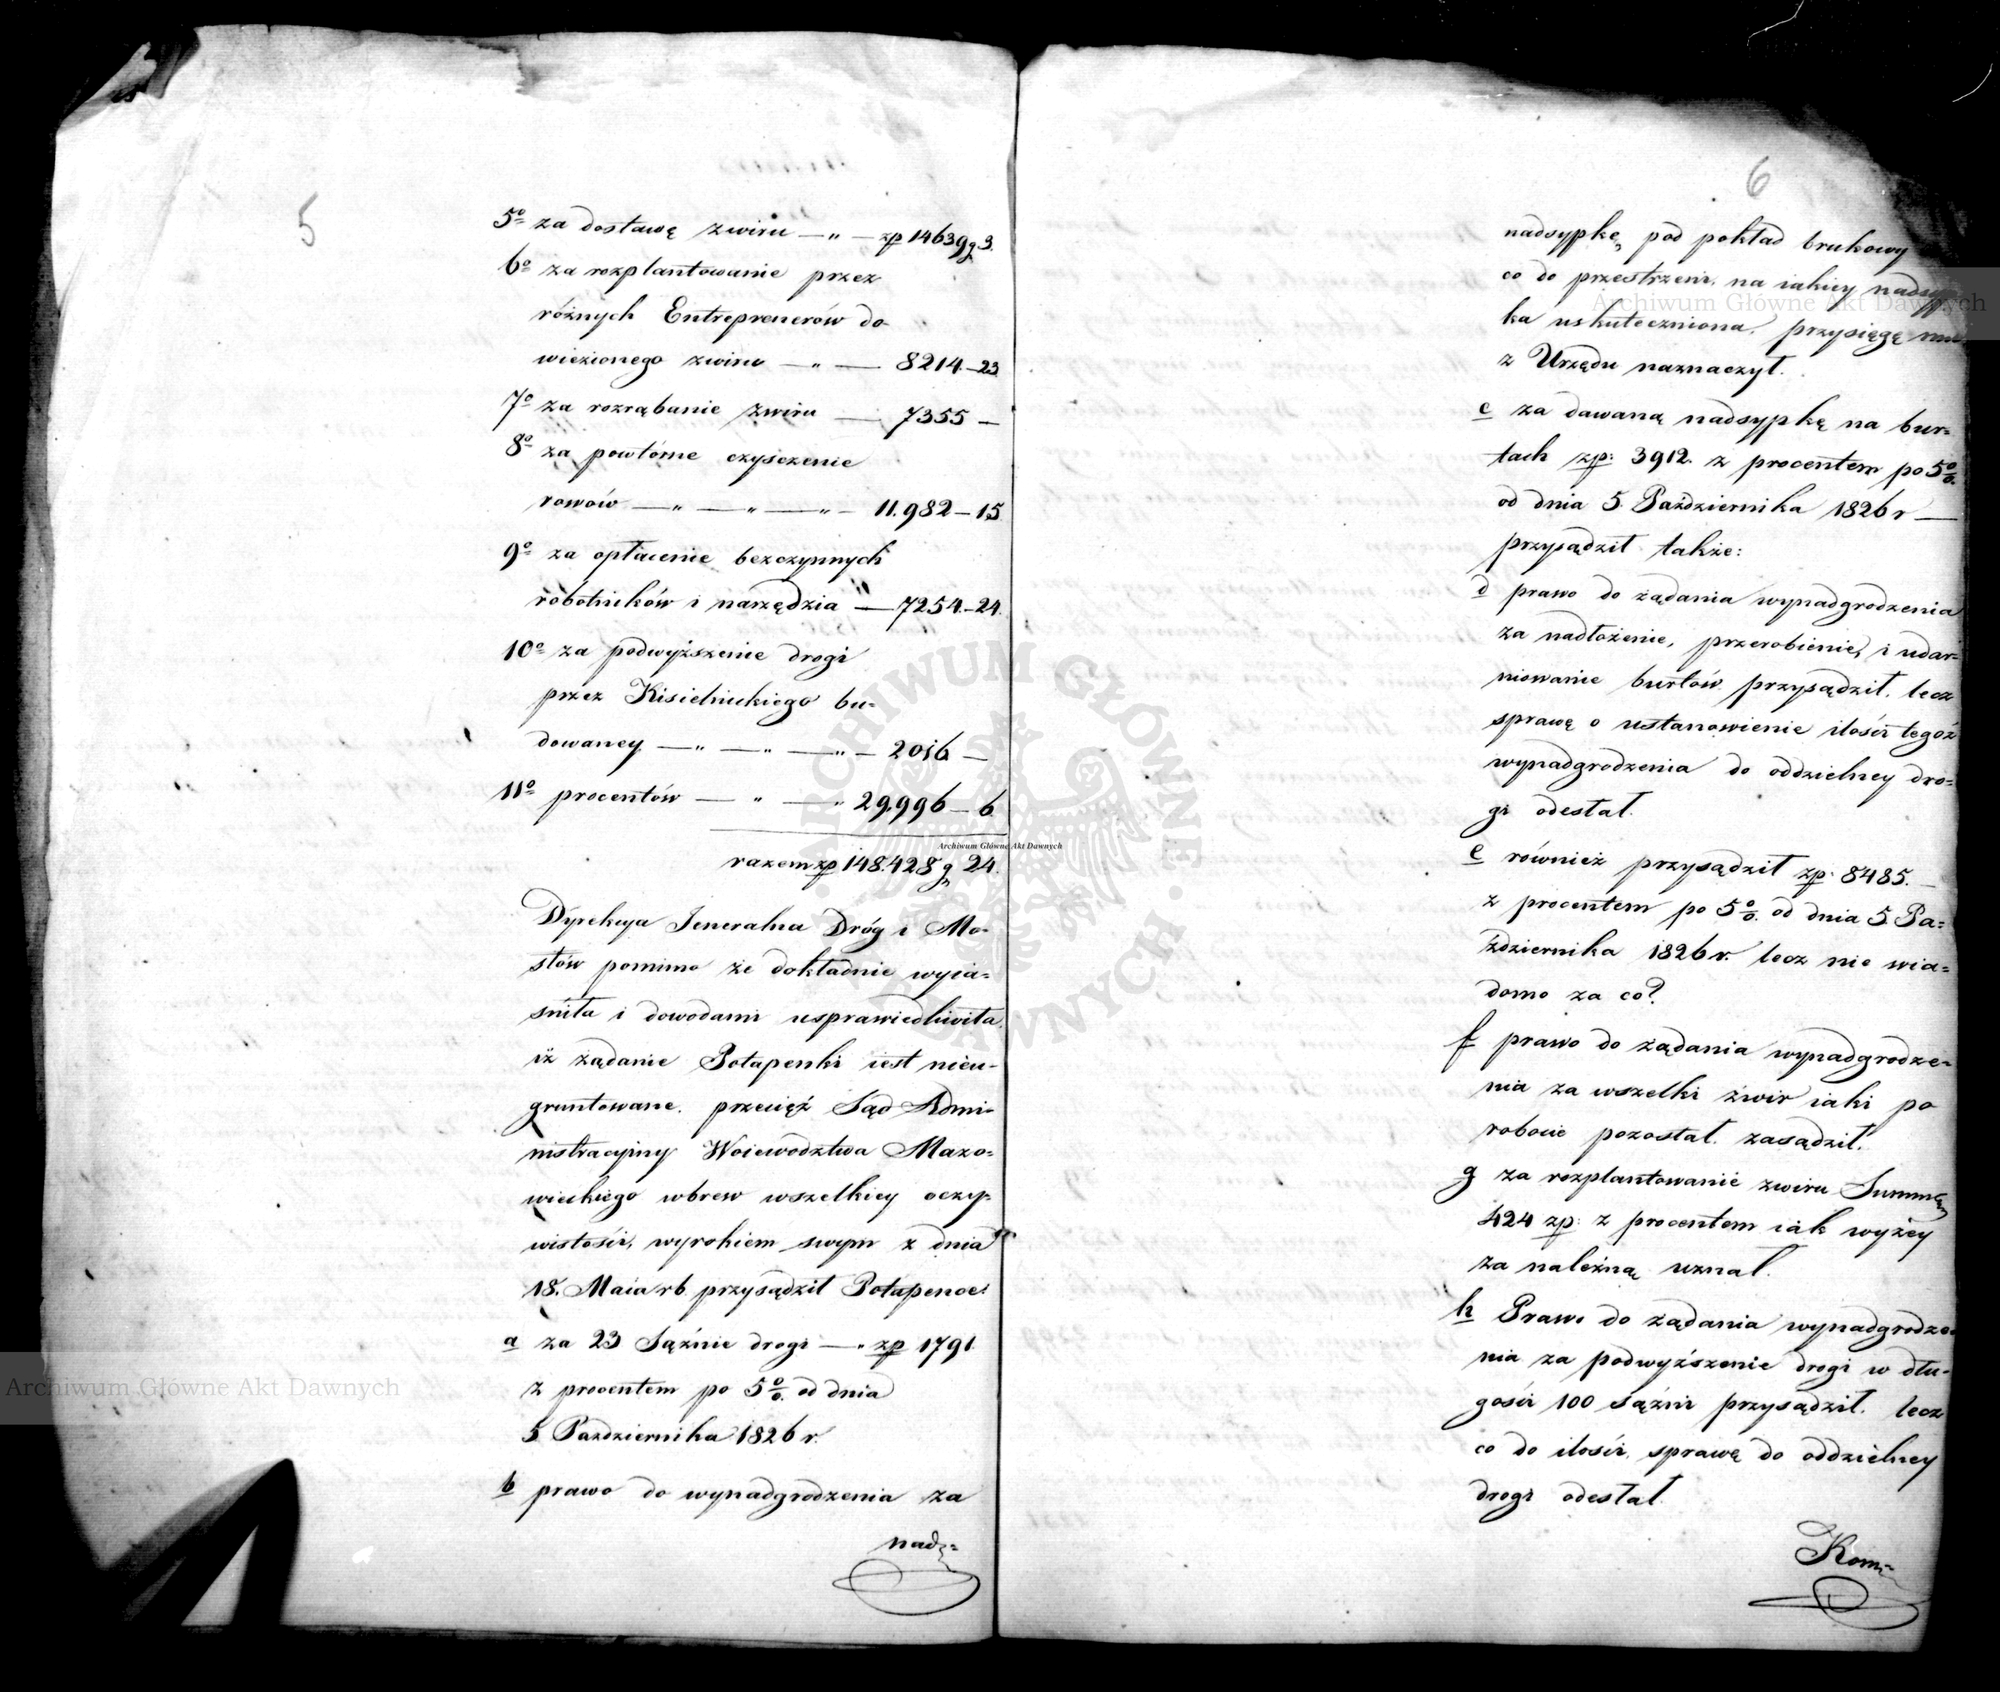 5
5o za dostawę zwiru — „ — zp 14639 g 3.
6o za rozplantowanie przez
różnych Entreprenerów do-
wiezionego zwiru — „ — 8214.—23
7o za rozrąbanie zwiru — 7355 —
8o za powtórne czysczenie
rowów — „ — „ — „ — 11.982—15
9o za opłacenie bezczynnych
robotników i narzędzia — 7254.—24.
10o za podwyższenie drogi
przez Kisielnickiego bu-
dowaney — „ — „ — „ — 2016 —
11o procentów — „ — „ 29.996—6
razem zp 148.428 g 24.
Dyrekcya Jeneralna Dróg i Mo-
stów pomimo że dokładnie wyia-
śniła i dowodami usprawiedliwiła
iż żądanie Potapenki iest nieu-
gruntowane. przecięż Sąd Admi-
nistracyiny Woiewodztwa Mazo-
wieckiego wbrew wszelkiey oczy-
wistości, wyrokiem swym z dnia
18. Maia rb. przysądził Potapence:
a za 23 Sążnie drogi — „ zp 1791.
z procentem po 5 o/o. od dnia
5 Pazdziernika 1826 r.
b prawo do wynadgrodzenia za
nad=
6
nadsypkę pod pokład brukowy
co do przestrzeni, na iakiey nadsyp
ka uskuteczniona, przysięgę mu
z Urzędu naznaczył.
c za dawaną nadsypkę na bur=
tach zp: 3912. z procentem po 5 o/o.
od dnia 5. Października 1826 r —
przysądził także:
d prawo do żądania wynadgrodzenia
za nadłożenie, przerobienie, i udar=
niowanie burtów przysądził. lecz
sprawę o ustanowienie ilości tegoż
wynadgrodzenia do oddzielney dro=
gi odesłał.
e również przysądził zp. 8485. —
z procentem po 5 o/o. od dnia 5. Pa=
ździernika 1826 r. lecz nie wia=
domo za co?
f prawo do żądania wynadgrodze=
nia za wszelki żwir iaki po
robocie pozostał. zasądził.
g za rozplantowanie zwiru Summę
424 zp: z procentem iak wyżey
za należną uznał.
h Prawo do żądania wynadgrodze
nia za podwyższenie drogi w dłu-
gości 100 sążni przysądził. lecz
co do ilości, sprawę do oddzielney
drogi odesłał.
Kom=
Archiwum Główne Akt Dawnych
Archiwum Główne Akt Dawnych
Archiwum Główne Akt Dawnych
ARCHIWUM GŁÓWNE AKT DAWNYCH